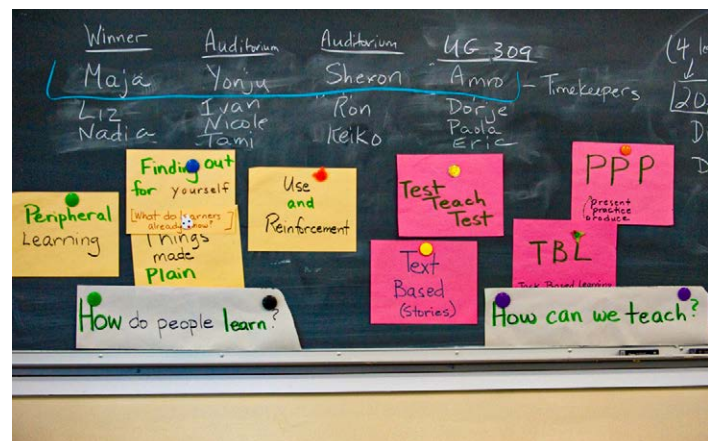 Winner
Auditorium
Auditorium
UG 309
(4 
Maja
Yonju
Sheron
Amro
- Timekeepers
Liz
Ivan
Ron
Dorje
Nadia
Nicole
Keiko
Paola
Tami
Eric
Peripheral
Learning
Finding out
for yourself
[What do learners
already know?]
Things
made
Plain
Use
and
Reinforcement
Test
Teach
Test
Text
Based
(Stories)
PPP
present
practice
produce
TBL
Task Based learning
How do people learn?
How can we teach?